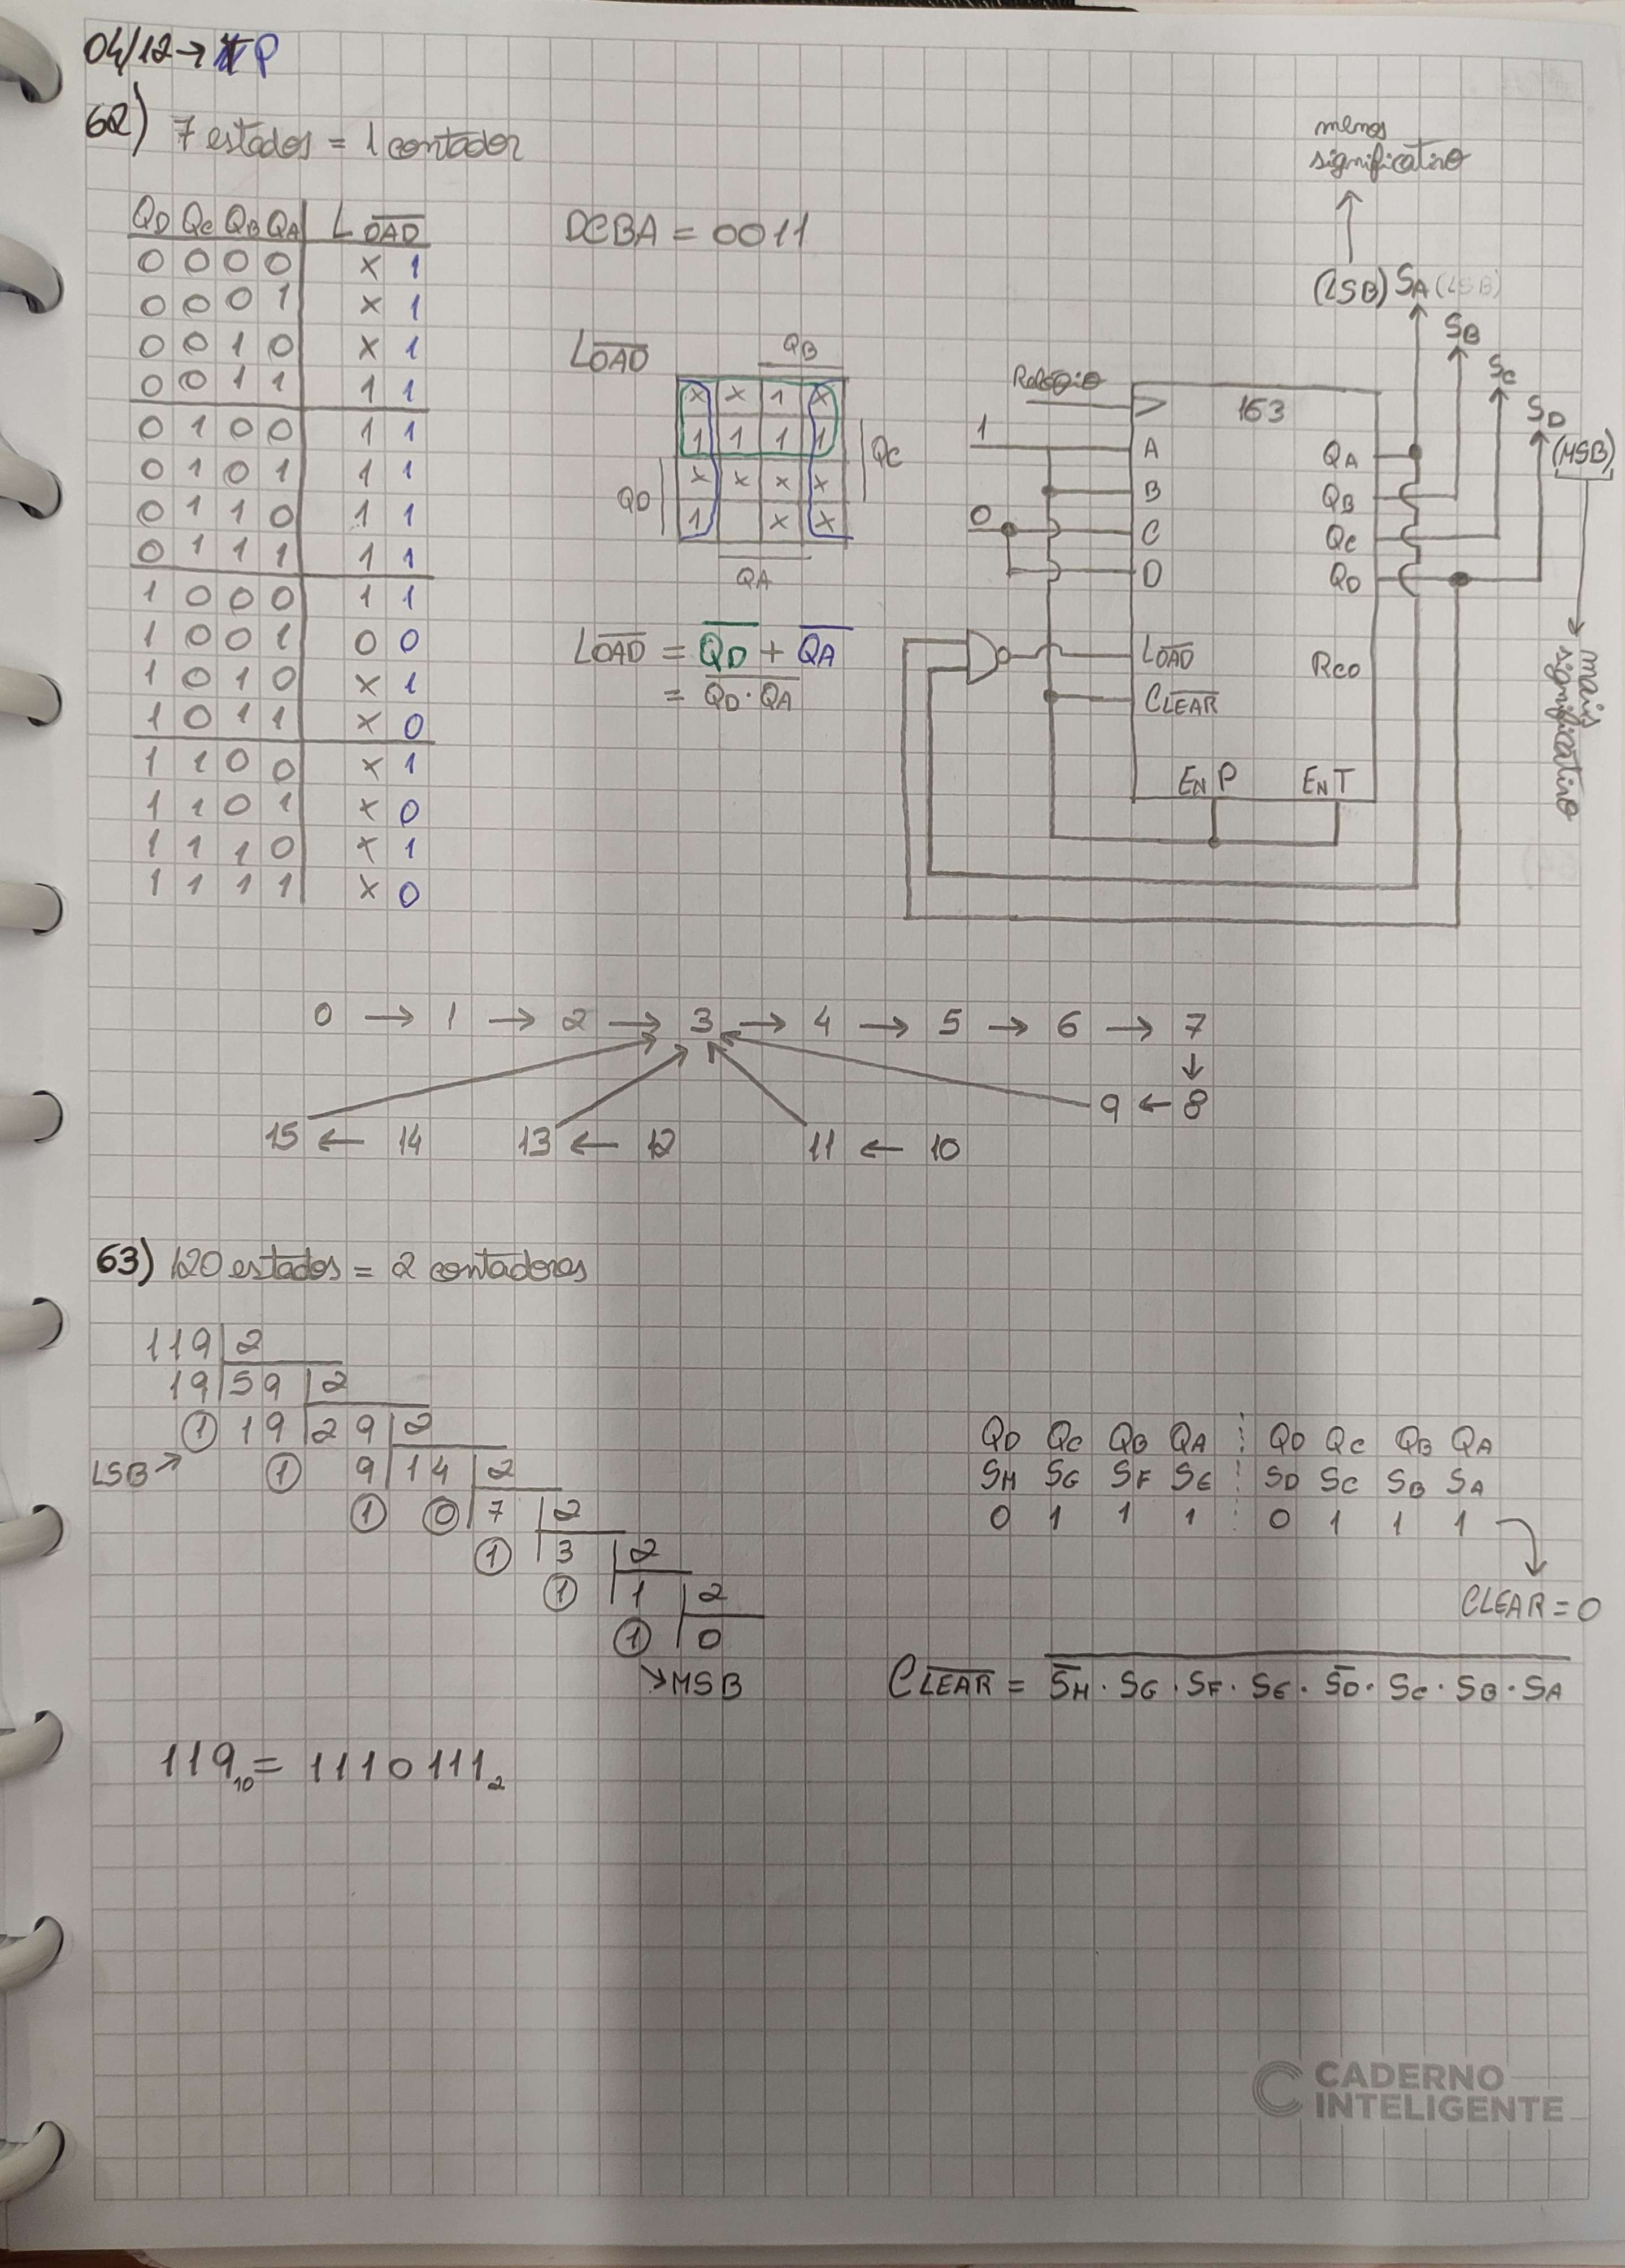 04/12 → P
62) 7 estados = 1 contador
QD QC QB QA | LOAD
0 0 0 0 | x 1
0 0 0 1 | x 1
0 0 1 0 | x 1
0 0 1 1 | 1 1
0 1 0 0 | 1 1
0 1 0 1 | 1 1
0 1 1 0 | 1 1
0 1 1 1 | 1 1
1 0 0 0 | 1 1
1 0 0 1 | 0 0
1 0 1 0 | x 1
1 0 1 1 | x 0
1 1 0 0 | x 1
1 1 0 1 | x 0
1 1 1 0 | x 1
1 1 1 1 | x 0
DCBA = 0011
LOAD
QB
x x 1 x
1 1 1 1 QC
QD x x x x
1 x x
QA
L̅O̅A̅D̅ = Q̅D̅ + Q̅A̅
= Q̅D̅ ̅·̅ ̅Q̅A̅
menos
significativo
(LSB) SA (LSB)
SB
SC
SD
(MSB)
mais
significativo
Relógio
163
1
A
B
0
C
D
QA
QB
QC
QD
LOAD
RCO
CLEAR
EN P EN T
0 → 1 → 2 → 3 → 4 → 5 → 6 → 7
9 ← 8
15 ← 14 13 ← 12 11 ← 10
63) 120 estados = 2 contadores
119 | 2
19 | 59 | 2
1 19 | 29 | 2
LSB 1 9 | 14 | 2
1 0 | 7 | 2
1 | 3 | 2
1 | 1 | 2
1 | 0
MSB
119₁₀ = 1110111₂
QD QC QB QA ⋮ QD QC QB QA
SH SG SF SE ⋮ SD SC SB SA
0 1 1 1 ⋮ 0 1 1 1
CLEAR = 0
CLEAR = S̅H · SG · SF · SE · S̅D · SC · SB · SA
CADERNO
INTELIGENTE